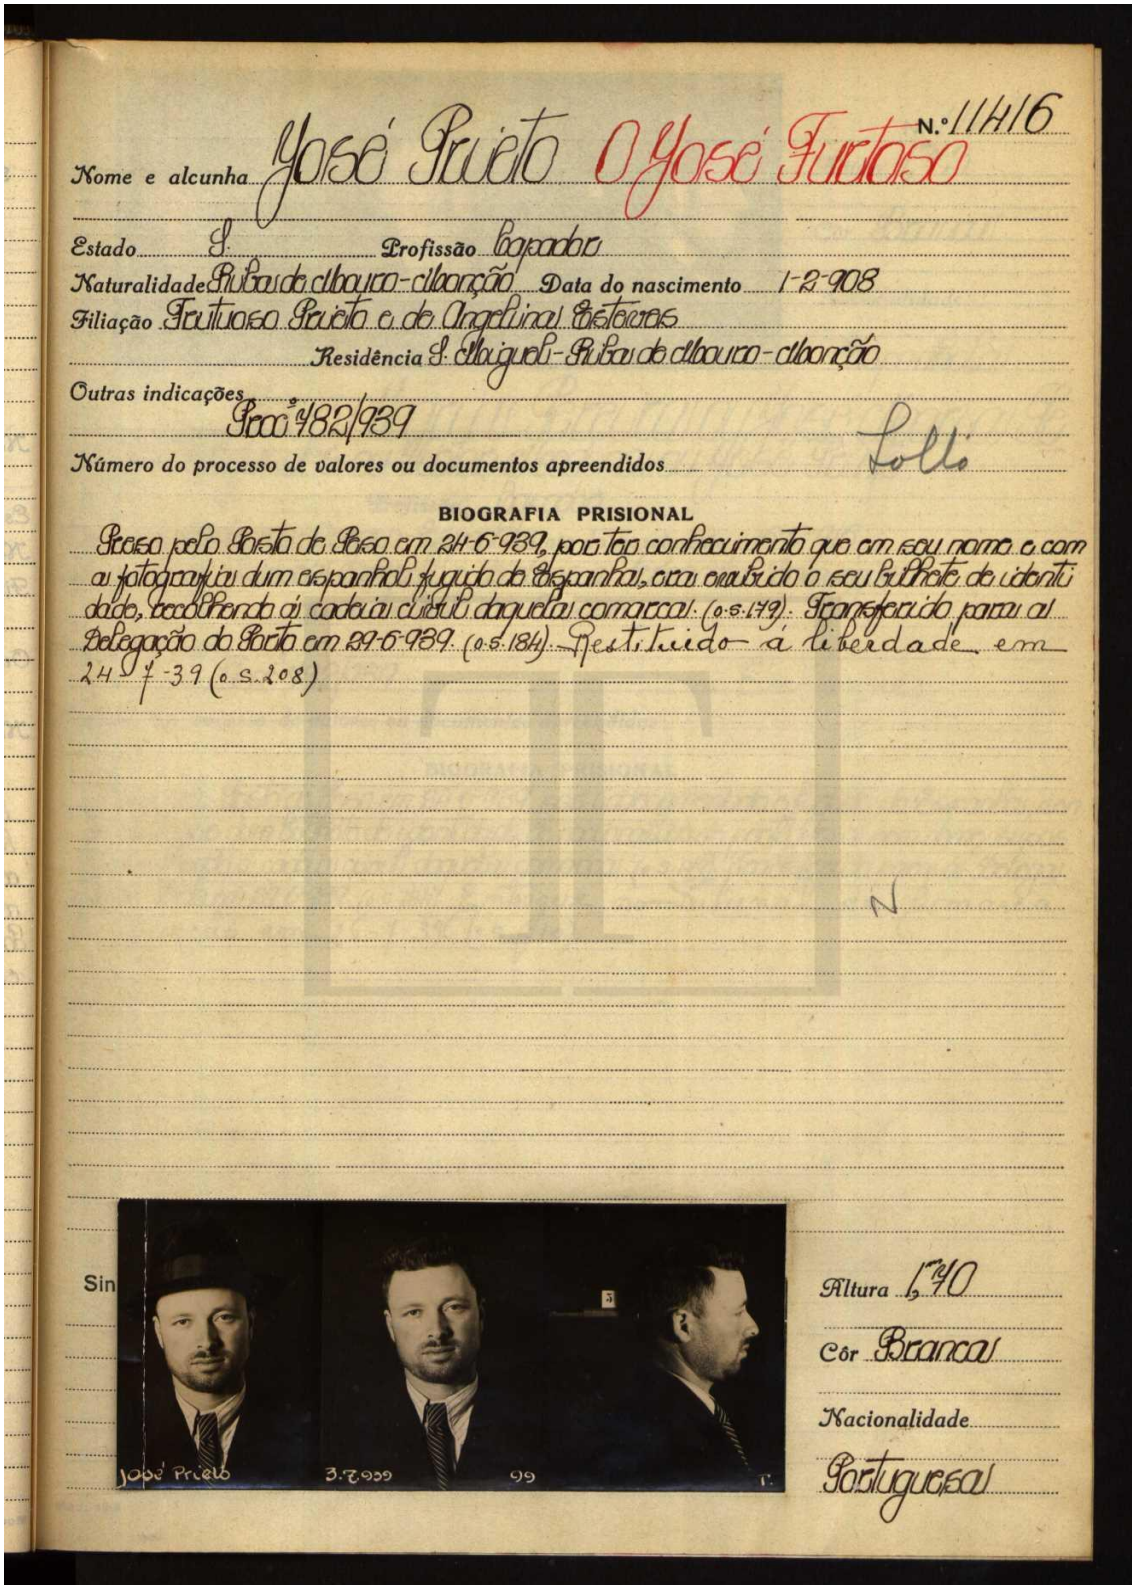 N.º 11416
Nome e alcunha José Prieto O José Furtoso
Estado S. Profissão Capador
Naturalidade Riba de Mouro - Monção Data do nascimento 1-2-908
Filiação Frutuoso Prieto e de Angelina Esteves
Residência S. Miguel - Riba de Mouro - Monção
Outras indicações
Procº 782/939
Número do processo de valores ou documentos apreendidos
BIOGRAFIA PRISIONAL
Preso pelo Posto de Peso em 24-6-939, por ter conhecimento que em seu nome e com
a fotografia dum espanhol fugido de Espanha, era exibido o seu bilhete de identi
dade, recolhendo á cadeia civil daquela comarca. (o.s.179). Transferido para a
Delegação do Porto em 29-6-939. (o.s.184). Restituido á liberdade em
24-7-39 (o s. 208)
N
Sin
Altura 1,70
Côr Branca
Nacionalidade
Portuguesa
José Prieto 3.7.939 99 T.
3